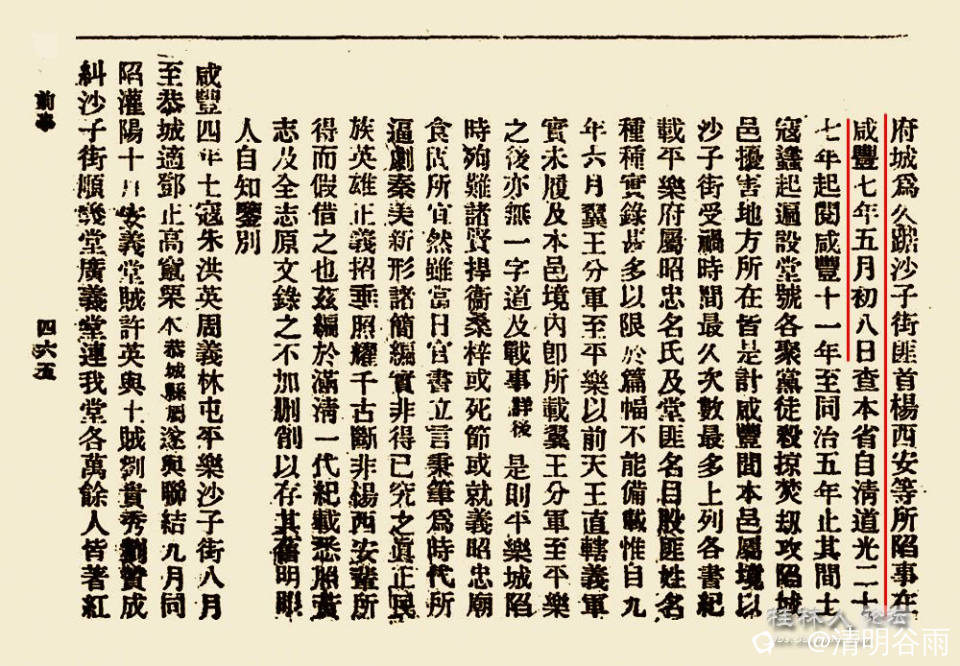 府城爲久踞沙子街匪首楊西安等所陷事在
咸豐七年五月初八日查本省自清道光二十
七年起閱咸豐十一年至同治五年止其間土
寇蠭起遍設堂號各聚黨徒殺掠焚刼攻陷城
邑擾害地方所在皆是計咸豐間本邑屬境以
沙子街受禍時間最久次數最多上列各書紀
載平樂府屬昭忠名氏及堂匪名目股匪姓名
種種實錄甚多以限於篇幅不能備載惟自九
年六月翼王分軍至平樂以前天王直轄義軍
實未履及本邑境內卽所載翼王分軍至平樂
之後亦無一字道及戰事詳後是則平樂城陷
時殉難諸賢捍衞桑梓或死節或就義昭忠廟
食固所宜然雖當日官書立言秉筆爲時代所
逼劇秦美新形諸簡編實非得已究之眞正民
族英雄正義招垂照耀千古斷非楊西安輩所
得而假借之也茲編於滿清一代紀載悉照舊
志及全志原文錄之不加删削以存其舊明眼
人自知鑒別
咸豐四年土寇朱洪英周義林屯平樂沙子街八月
至恭城適鄧正高竄栗木恭城縣屬遂與聯結九月同
陷灌陽十月安義堂賊許英與土賊劉貴秀劉贊成
糾沙子街順義堂廣義堂連我堂各萬餘人皆著紅
前事
四六五
桂林人论坛
@清明谷雨